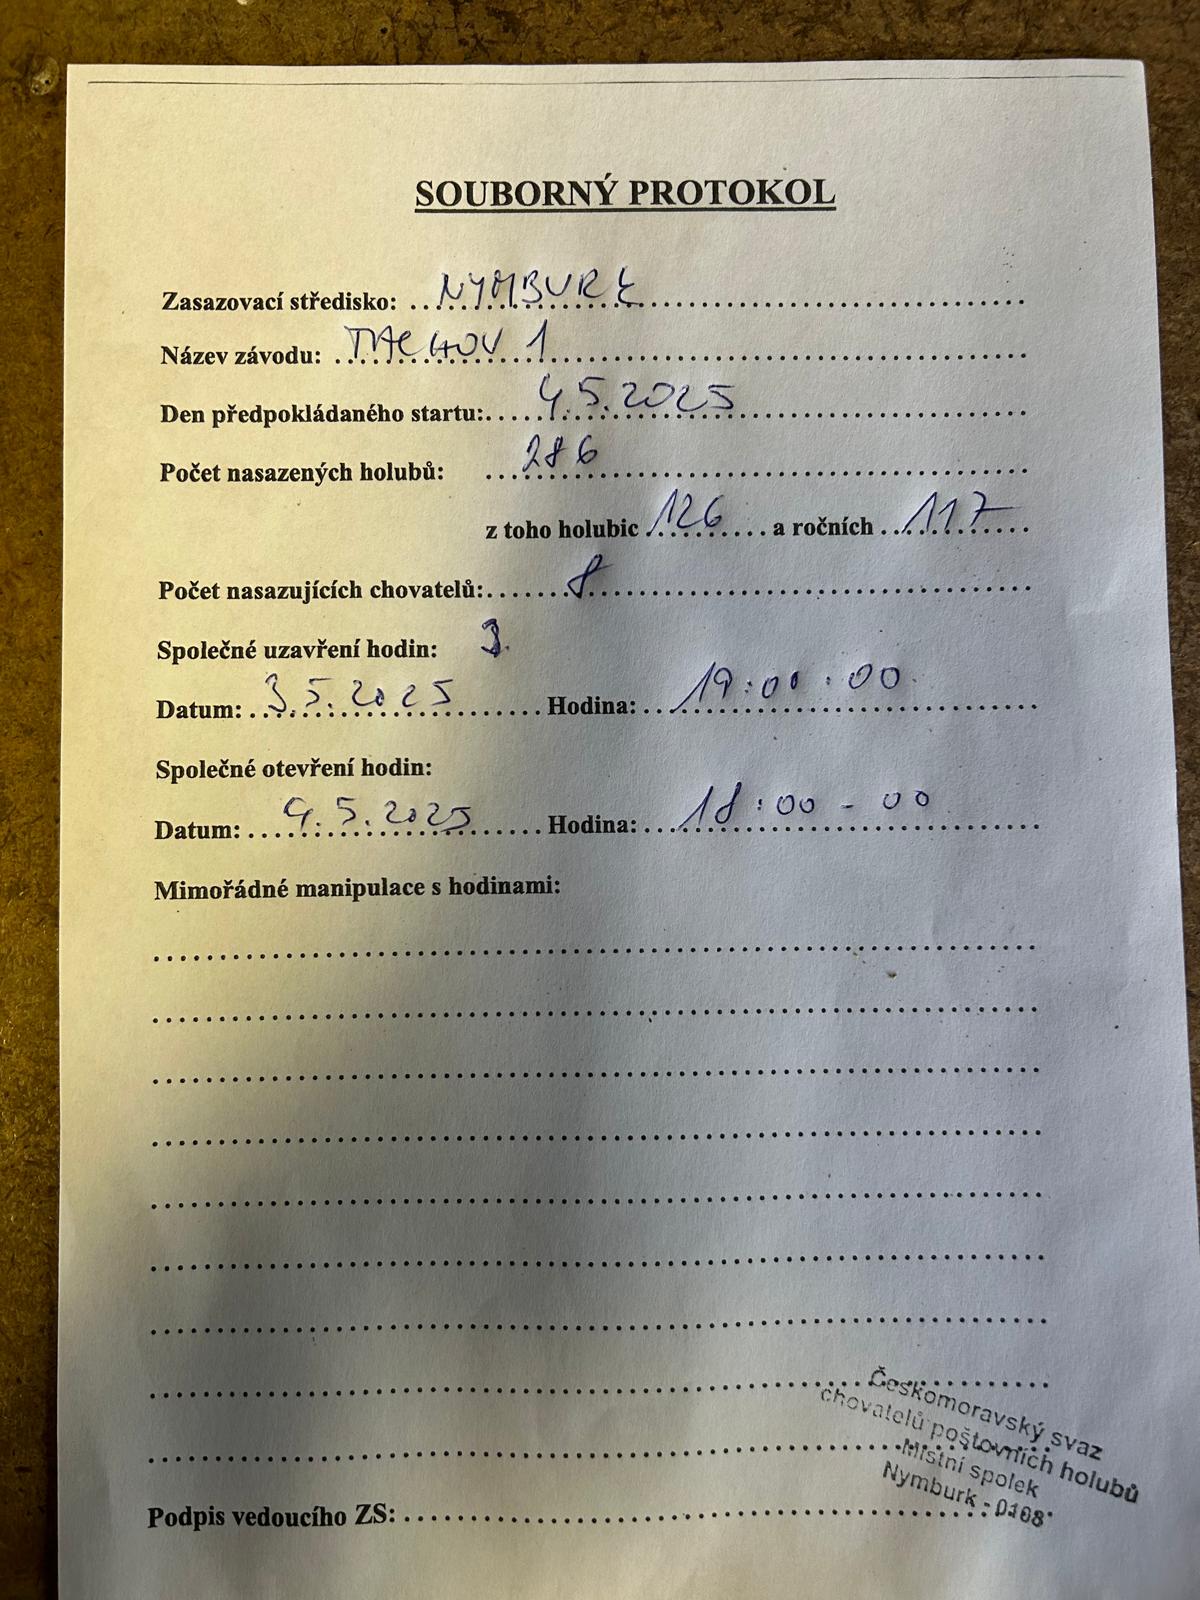 SOUBORNÝ PROTOKOL
Zasazovací středisko: NYMBURK
Název závodu: TACHOV 1
Den předpokládaného startu: 4.5.2025
Počet nasazených holubů: 286
z toho holubic 126 a ročních 117
Počet nasazujících chovatelů: 8
Společné uzavření hodin: 3.
Datum: 3.5.2025 Hodina: 19:00:00
Společné otevření hodin:
Datum: 4.5.2025 Hodina: 18:00-00
Mimořádné manipulace s hodinami:
Českomoravský svaz
chovatelů poštovních holubů
Místní spolek
Nymburk - 0108
Podpis vedoucího ZS: